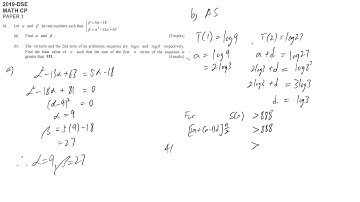 2019-DSE
MATH CP
PAPER 1
16. Let α and β be real numbers such that { β = 5α − 18
β = α² − 13α + 63
(a) Find α and β. (2 marks)
(b) The 1st term and the 2nd term of an arithmetic sequence are log α and log β respectively.
Find the least value of n such that the sum of the first n terms of the sequence is
greater than 888.
a) α² − 13α + 63 = 5α − 18
α² − 18α + 81 = 0
(α − 9)² = 0
α = 9
β = 5(9) − 18
= 27
∴ α = 9, β = 27
b) AS
T(1) = log 9 T(2) = log 27
a = log 9 a + d = log 27
= 2 log 3 2 log 3 + d = log 3³
2 log 3 + d = 3 log 3
d = log 3
For S(n) > 888
[2a + (n−1)d] n/2 > 888
>